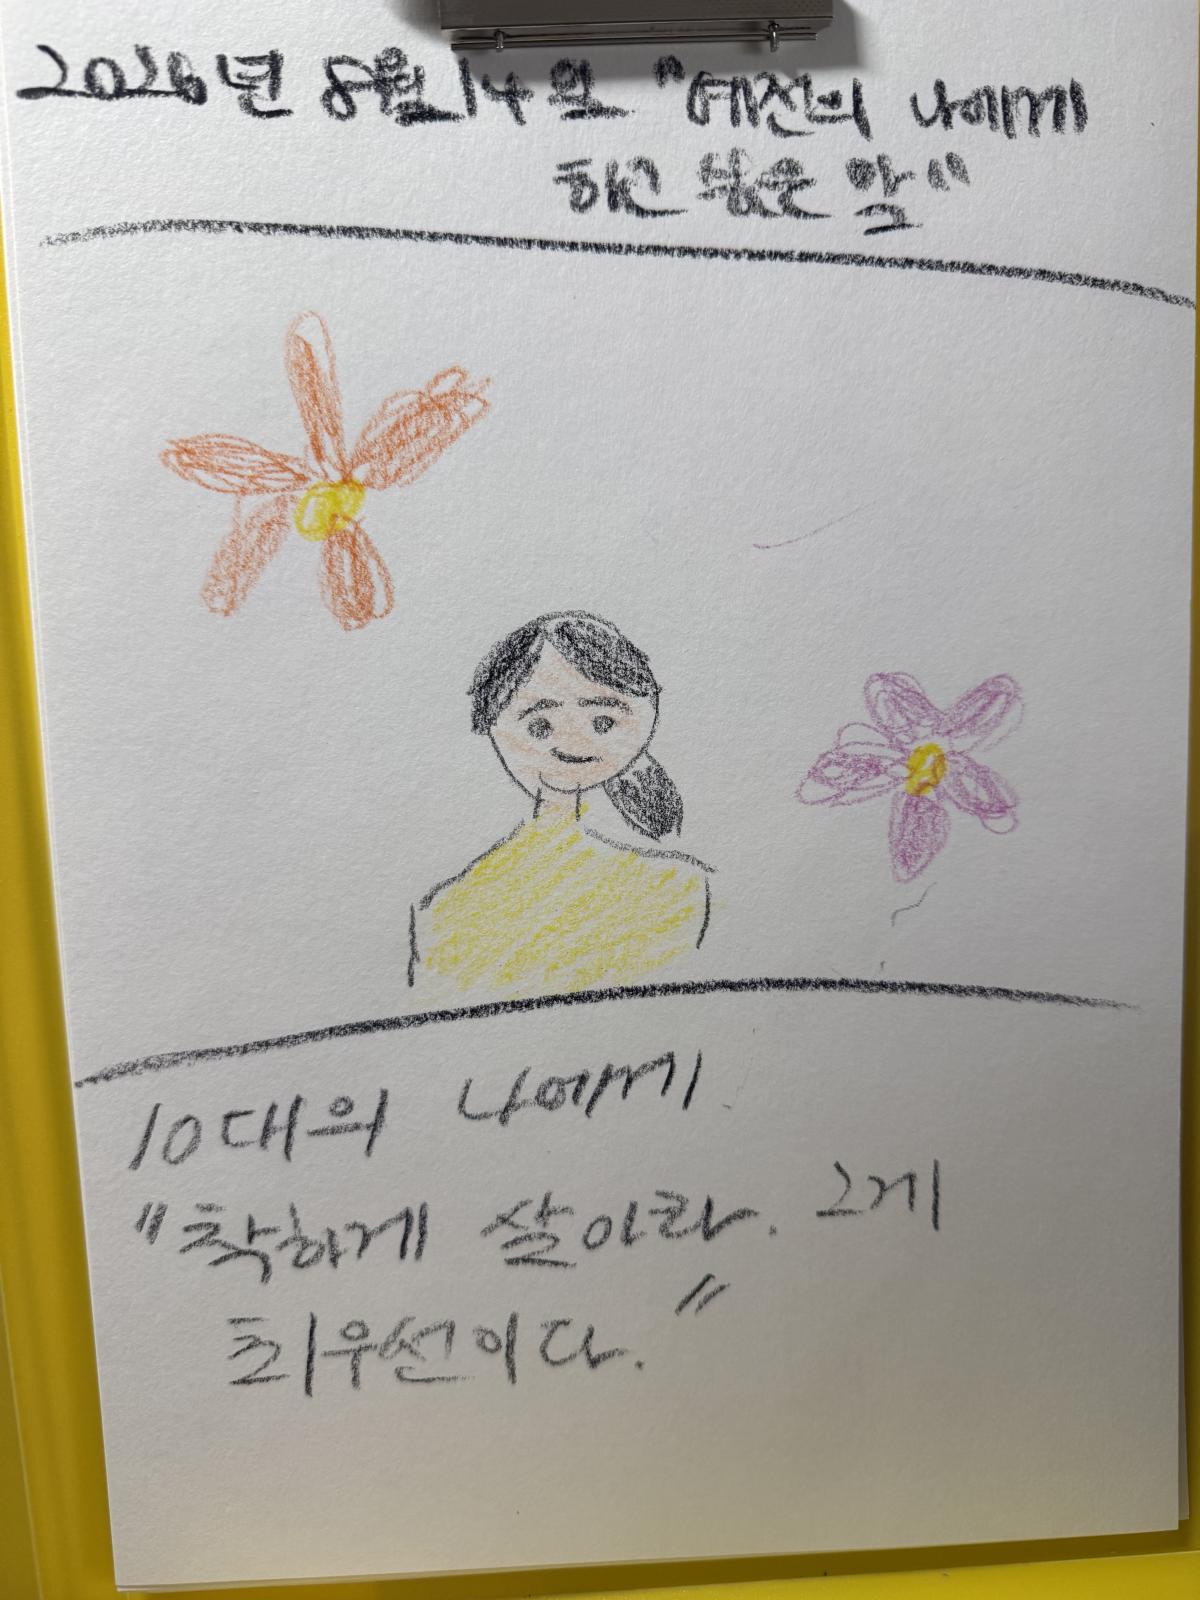 2026년 8월 14일 "예전의 나에게
하고 싶은 말"
10대의 나에게
"착하게 살아라. 그게
최우선이다."